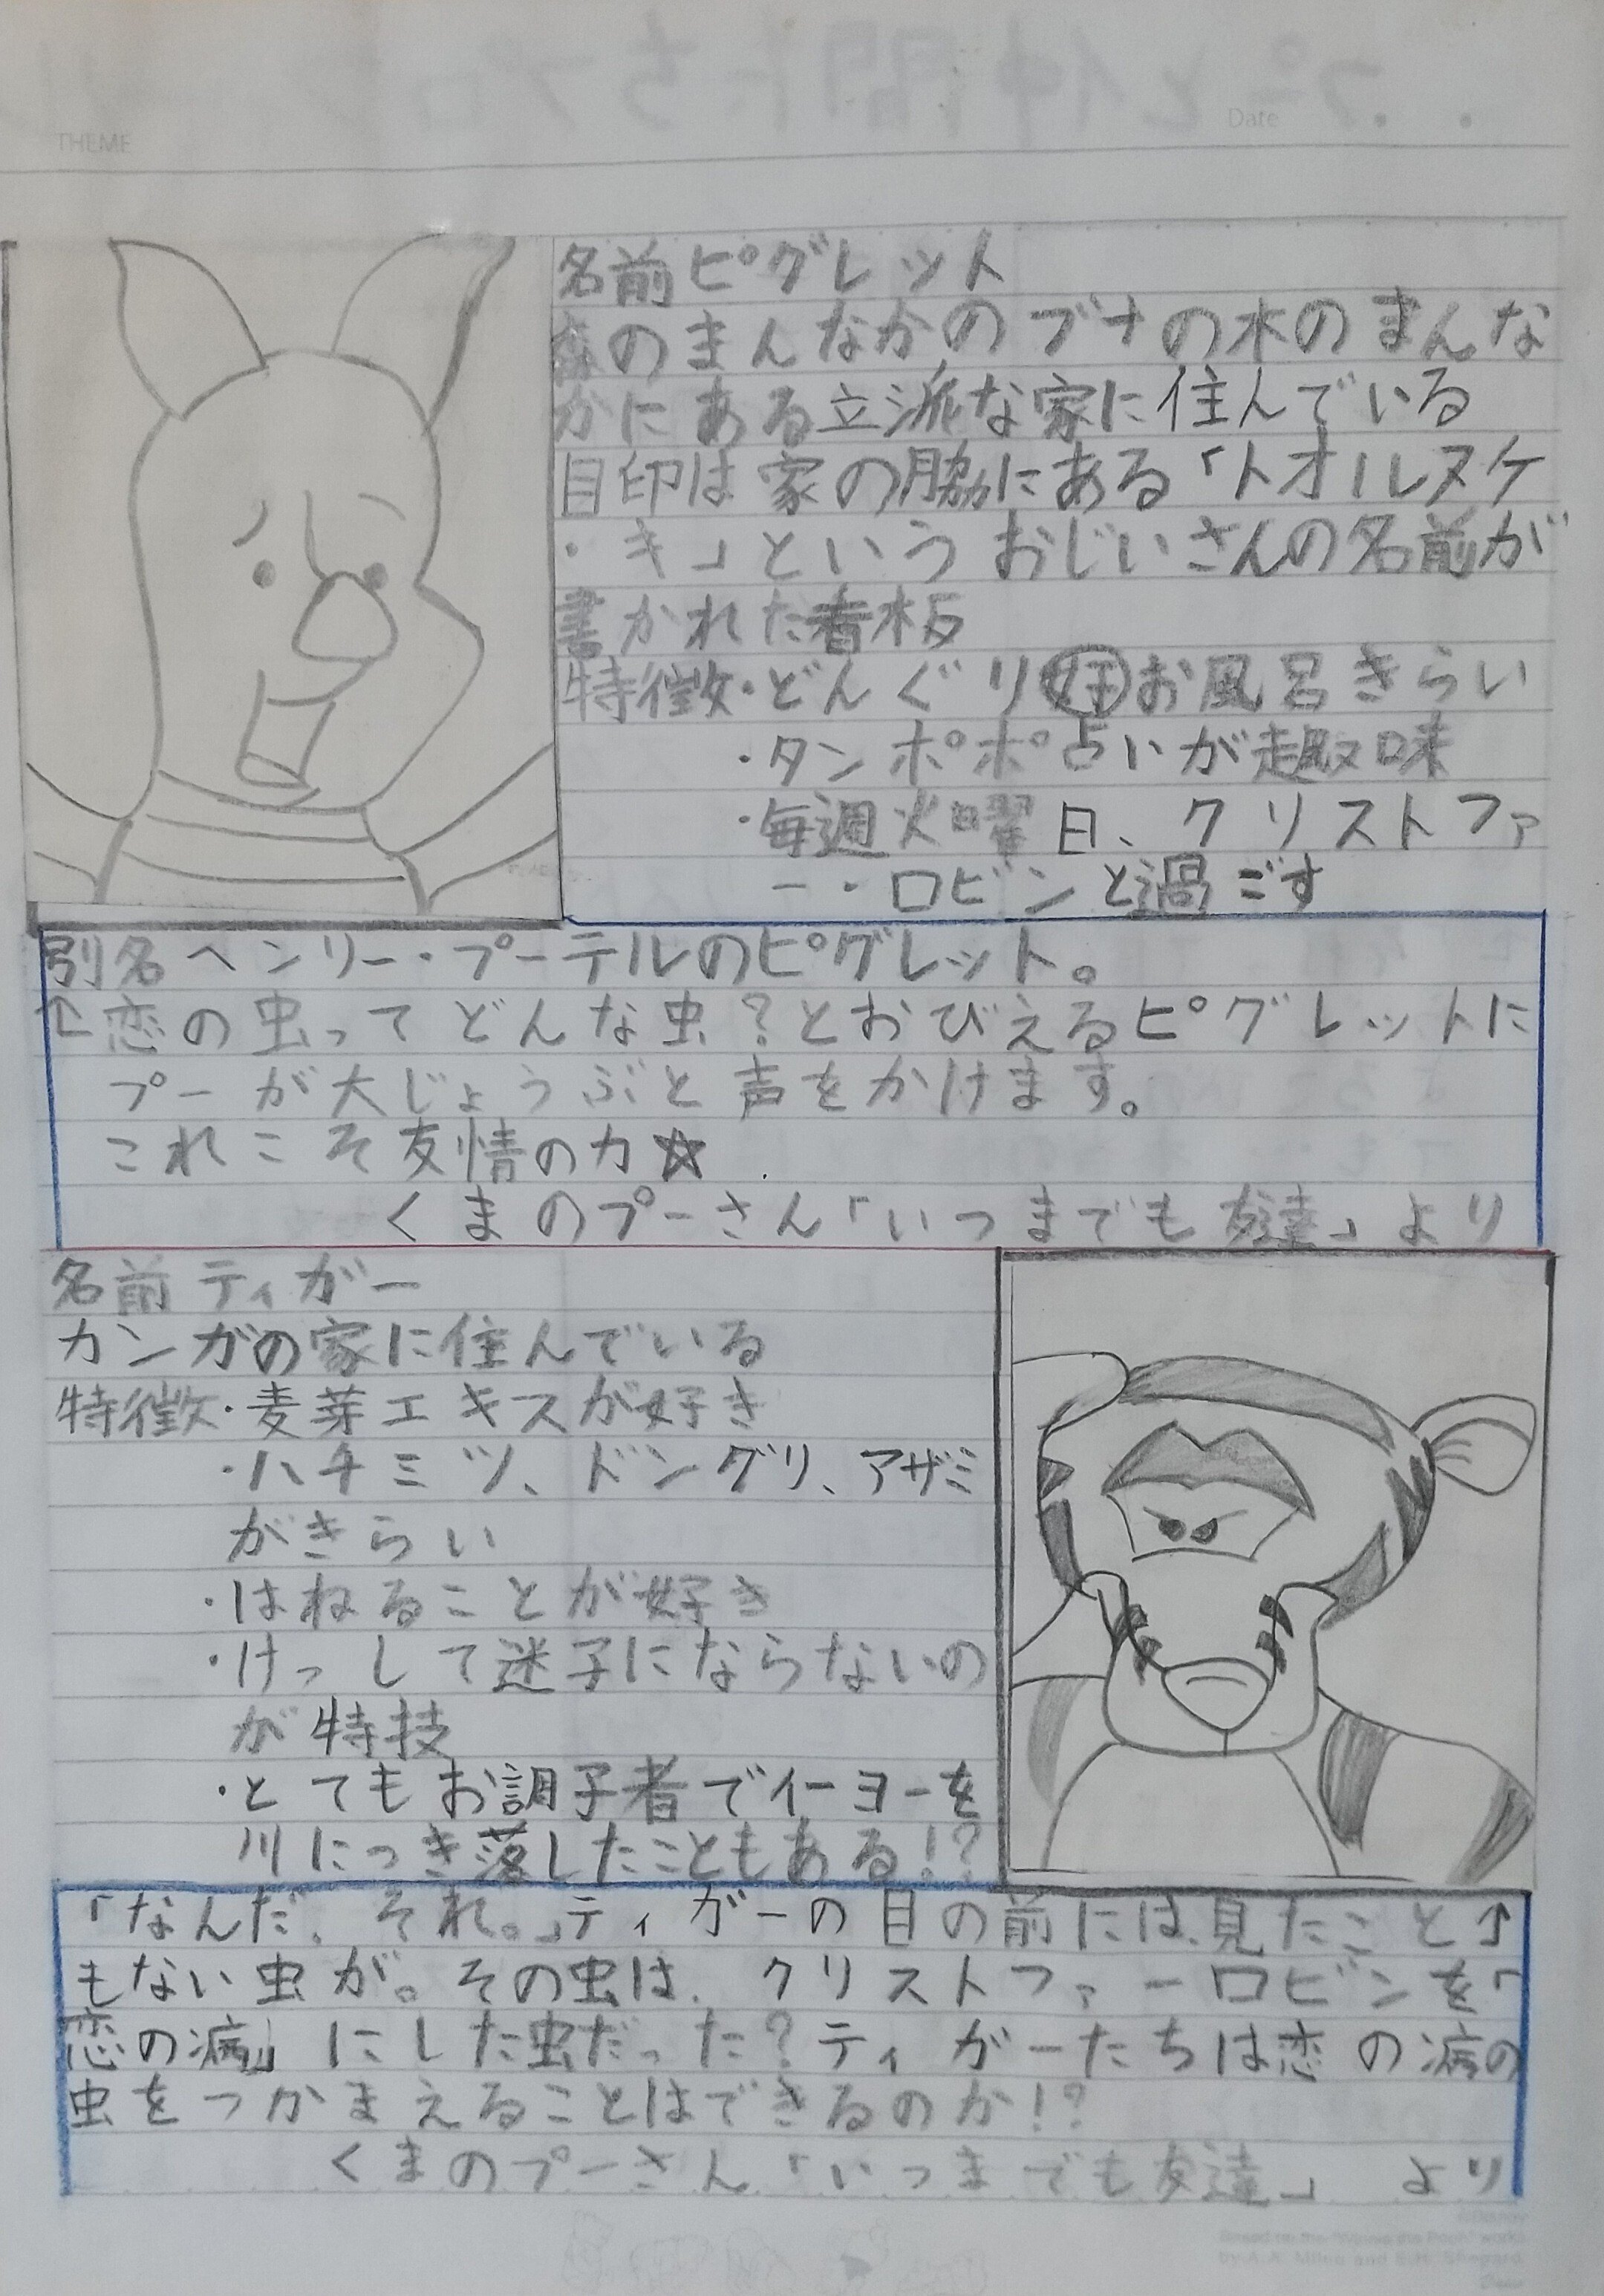 プーと仲間たちプロ
THEME
Date
名前ピグレット
森のまんなかのブナの木のまんな
かにある立派な家に住んでいる
目印は家の脇にある「トオルヌケ
・キ」というおじいさんの名前が
書かれた看板
特徴・どんぐり好お風呂きらい
・タンポポ占いが趣味
・毎週火曜日、クリストファ
ー・ロビンと過ごす
別名ヘンリー・プーテルのピグレット。
↑恋の虫ってどんな虫?とおびえるピグレットに
プーが大じょうぶと声をかけます。
これこそ友情の力☆
くまのプーさん「いつまでも友達」より
名前ティガー
カンガの家に住んでいる
特徴・麦芽エキスが好き
・ハチミツ、ドングリ、アザミ
がきらい
・はねることが好き
・けっして迷子にならないの
が特技
・とてもお調子者でイーヨーを
川につき落したこともある!?
「なんだ、それ。」ティガーの目の前には見たこと↑
もない虫が。その虫は、クリストファーロビンを「
恋の病」にした虫だった?ティガーたちは恋の病の
虫をつかまえることはできるのか!?
くまのプーさん「いつまでも友達」より
©Disney
Based on the "Winnie the Pooh" works
by A.A. Milne and E.H. Shepard.